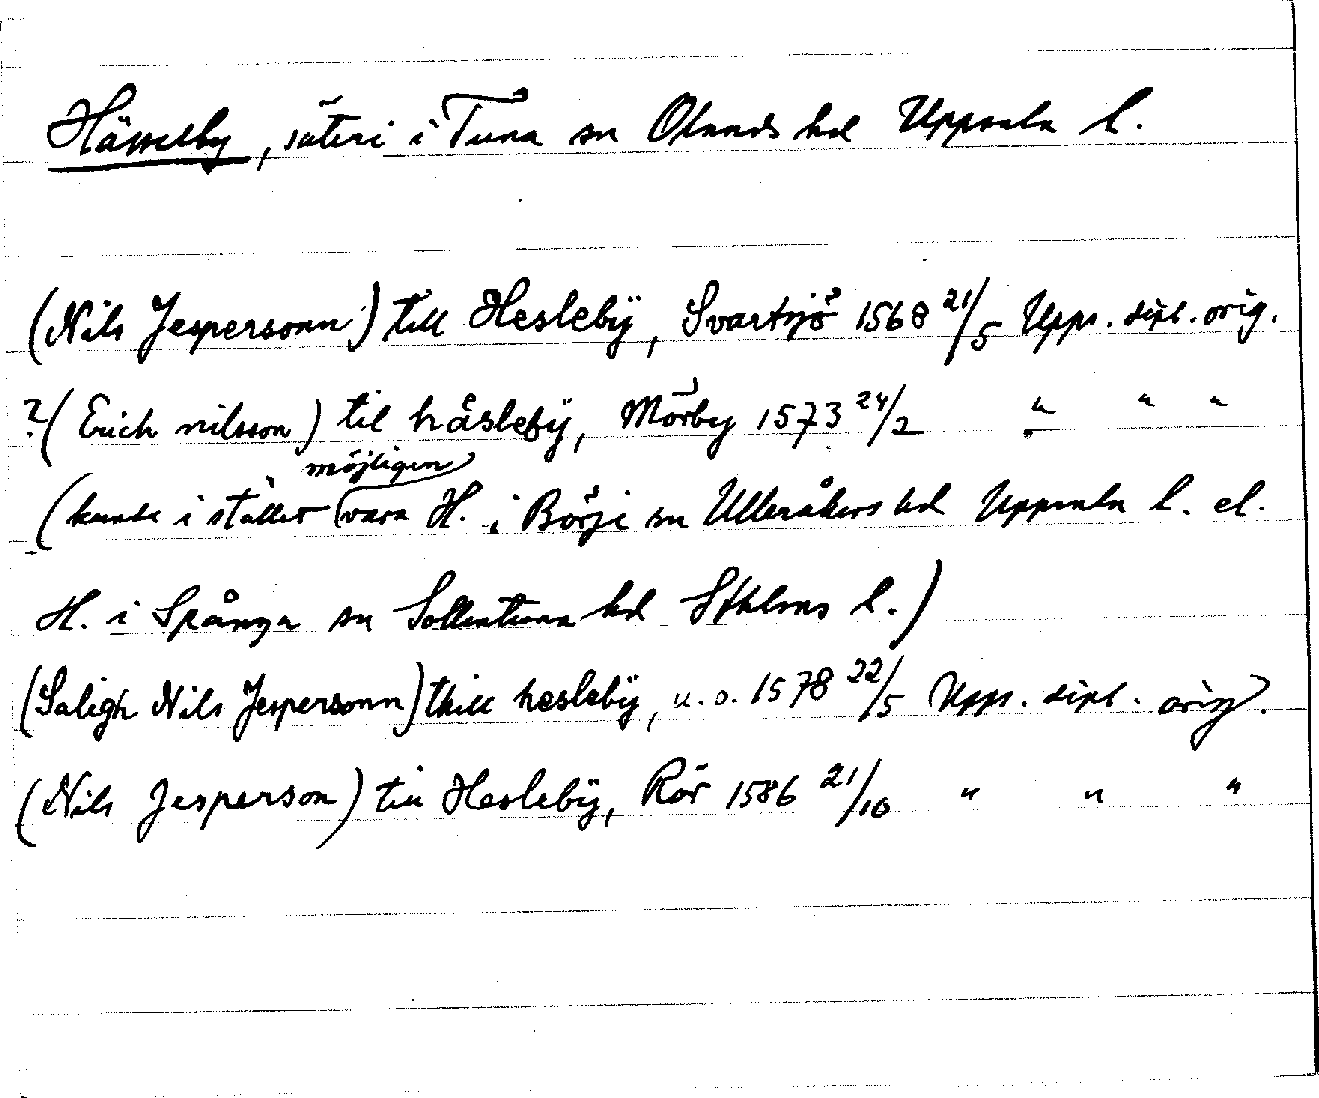 Hässelby, säteri i Tuna sn Olands hd Uppsala l.
(Nils Jespersonn) till Heslebÿ, Svartsjö 1568 21/5 Upps. dipl. orig.
?(Erich nilsson) til håslebÿ, Mörby 1573 24/2 " " "
möjligen
(kunde i stället vara H. i Börje sn Ulleråkers hd Uppsala l. el.
H. i Spånga sn Sollentuna hd Sthlms l.)
(Saligh Nils Jespersonn) thill heslebÿ, u.o. 1578 22/5 Upps. dipl. orig.
(Nils Jesperson) till Heslebÿ, Rör 1586 21/10 " " "